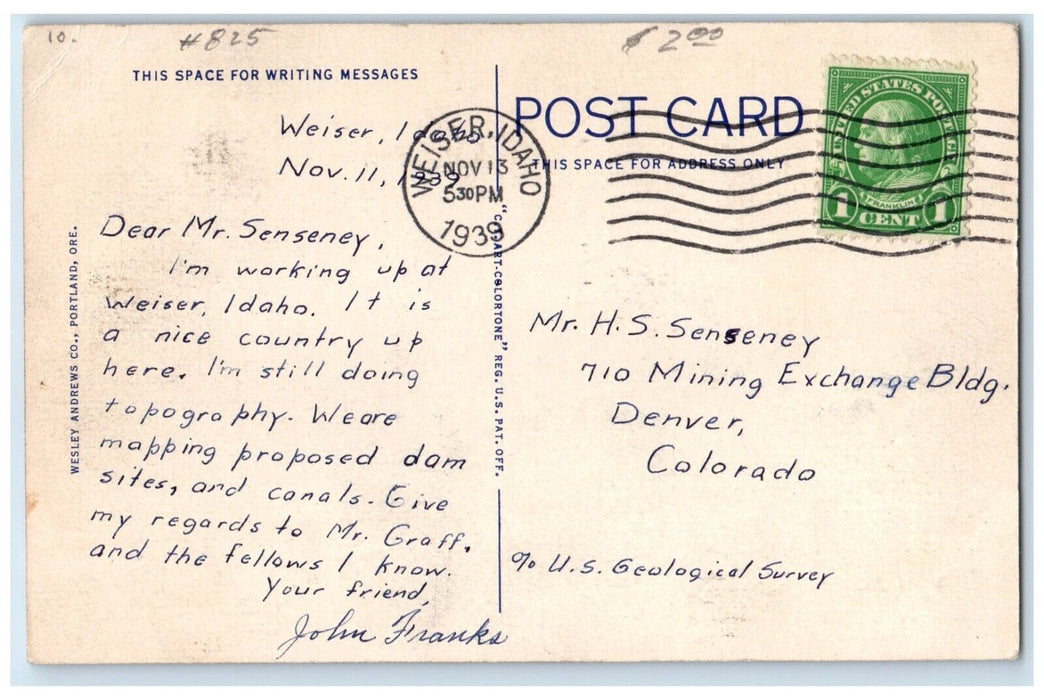 10.
#825
$2.00
THIS SPACE FOR WRITING MESSAGES
Weiser, Idaho
Nov. 11, 1939
Dear Mr. Senseney,
I'm working up at
Weiser, Idaho. It is
a nice country up
here. I'm still doing
topography. We are
mapping proposed dam
sites, and canals. Give
my regards to Mr. Graff,
and the fellows I know.
Your friend,
John Franks
WESLEY ANDREWS CO., PORTLAND, ORE.
WEISER, IDAHO
NOV 13
530 PM
1939
ART-COLORTONE" REG. U.S. PAT. OFF.
POST CARD
THIS SPACE FOR ADDRESS ONLY
UNITED STATES POSTAGE
FRANKLIN
1 CENT 1
Mr. H. S. Senseney
710 Mining Exchange Bldg.
Denver,
Colorado
% U.S. Geological Survey